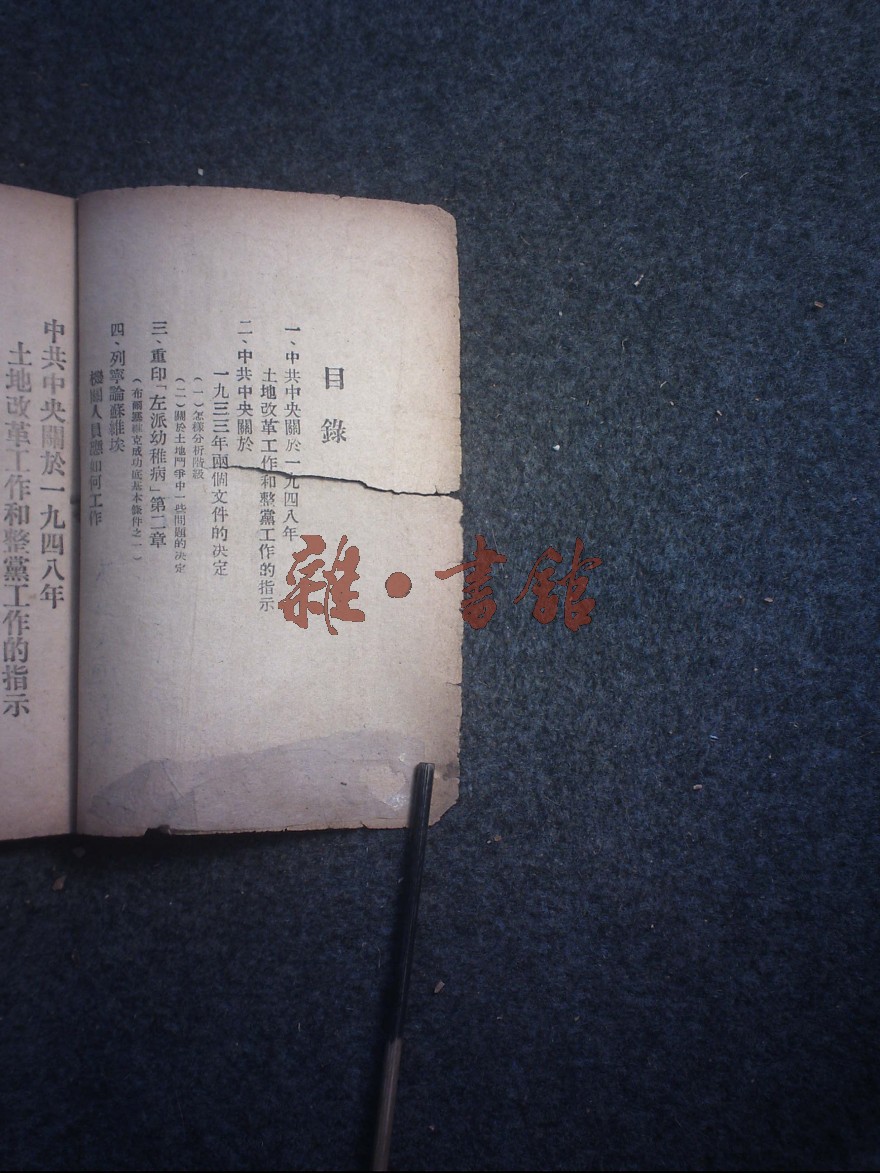 目錄
一、中共中央關於一九四八年
土地改革工作和整黨工作的指示
二、中共中央關於
一九三三年兩個文件的决定
(一)怎樣分析階級
(二)關於土地鬥爭中一些問題的决定
三、重印「左派幼稚病」第二章
(布爾塞維克成功底基本條件之一)
四、列寧論蘇維埃
機關人員應如何工作
中共中央關於一九四八年
土地改革工作和整黨工作的指示
雜·書館